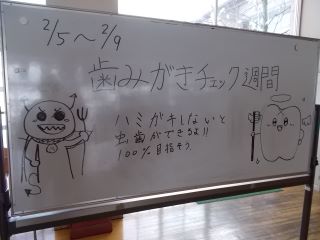 2/5～2/9
歯みがきチェック週間
ハミガキしないと
虫歯ができるよ!!
100%目指そう